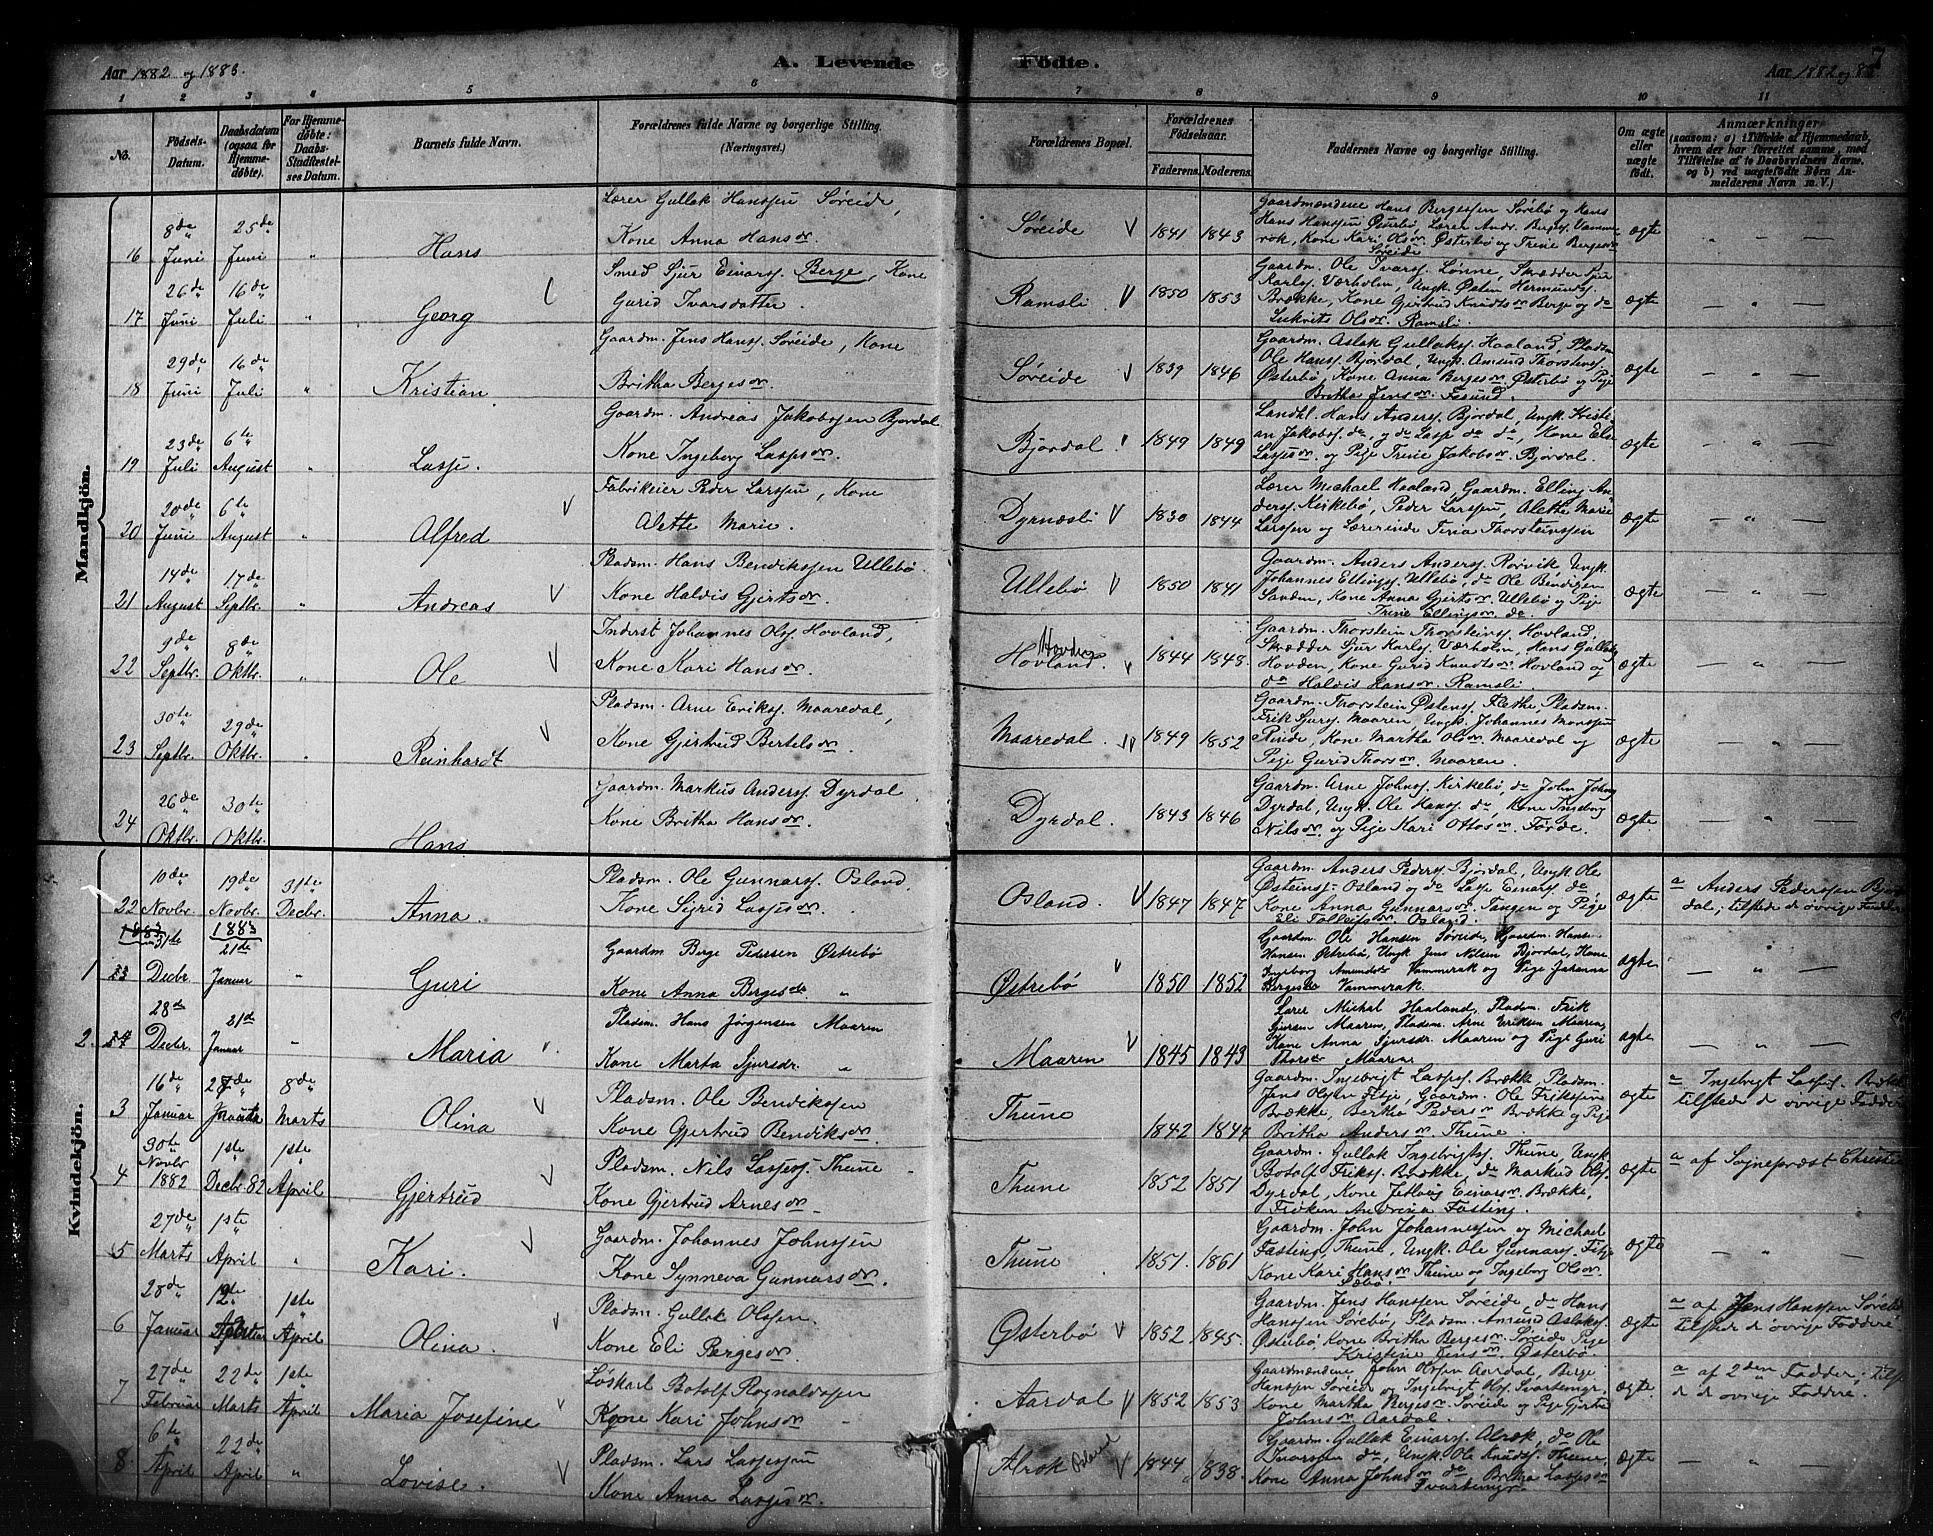 Aar 1882 og 1883.
A. Levende Födte.
Aar 1882 og 83
7
1 2 3 4 5 6 7 8 9 10 11
No.
Födsels-Datum.
Daabsdatum (ogsaa for Hjemmedöbte).
For Hjemmedöbte: Daabs-Stadfæstelses Datum.
Barnets fulde Navn.
Forældrenes fulde Navne og borgerlige Stilling. (Næringsvei.)
Forældrenes Bopæl.
Forældrenes Födselsaar. Faderens. Moderens.
Faddernes Navne og borgerlige Stilling.
Om ægte eller uægte födt.
Anmærkninger (saasom: a) i Tilfælde af Hjemmedaab, hvem der har forrettet samme, med Tilføielse af to Daabsvidners Navne. og b) ved uægtefödte Börn Anmelderens Navn m. V.)
Mandkjön.
16 8de Juni 25de Juni " Hans
Lærer Gullak Hanssen Söreide,
Kone Anna Hansdr.
Söreide 1841 1843
Gaardmændene Hans Bergessen Sörebö og Hans
ægte
17 26de Juni 16de Juli " Georg
Smed Sjur Einars. Berge, Kone
Gurid Ivarsdatter.
Ramsli 1850 1853
Gaardm. Ole Ivars. Lönne, Skrædder Sjur
Karls. Værholm, Ungk. Østen Hermunds.
Brække, Kone Gjertrud Knudtsdr Berge og do
Olsdr. Ramsli.
ægte
18 29de Juni 16de Juli " Kristian
Gaardm. Jens Hanss. Söreide, Kone
Britha Bergesdr.
Söreide 1839 1846
Gaardm. Aslak Gullaks. Haaland, Pladsm.
Ole Hanss. Bjordal, Ungk. Amund Thorstens.
Østerbö, Kone Anna Bergesdr. Østerbö og Pige
Britha Jensdr.
ægte
19 23de Juli 6te August " Lasse.
Gaardm. Andreas Jakobsen Bjordal
Kone Ingeborg Lassesdr.
Bjordal 1849 1849
Landhl. Hans Anders. Bjordal, Ungk. Kristian
Jakobs. do, og do Lasse do do, Kone Eli
Lassesdr. og Pige Trine Jakobsdr. Bjordal.
ægte
20 20de Juni 6te August " Alfred
Fabrikeier Peder Larssen, Kone
Alette Marie.
Dyrnæsli 1830 1844
Lærer Michael Haaland, Gaardm. Elling Anders.
Kirkebö, Peder Larssen, Alette Marie
Larssen og Lærerinde Thorsteinssen
ægte
21 14de August 17de Septbr. " Andreas
Pladsm. Hans Bendikssen Ullebö
Kone Haldis Gjertsdr.
Ullebö 1850 1841
Gaardm. Anders Anders. Rorvik, Ungk.
Johannes Ellings. Ullebö, do Ole Bendigsen
Sanden, Kone Anna Gjertsdr. Ullebö og Pige
Trine Ellingsdr. do
ægte
22 9de Septbr. 8de Oktbr. " Ole
Inderst Johannes Ols. Hovland,
Kone Kari Hansdr.
Hovland. Hovden 1844 1848.
Gaardm. Thorstein Thorsteins. Hovland,
Skrædder Sjur Karls. Værholm, Hans Gullaks.
Hovden, Kone Gurid Knudtsdr. Hovland og
do Haldis Hansdr. Ramsli
ægte
23 30te Septbr. 29de Oktbr. " Reinhardt
Pladsm. Arne Eriks. Maaredal,
Kone Gjertrud Bertelsdr.
Maaredal. 1849 1852
Gaardm. Thorstein Østens. Flethe, Pladsm.
Erik Sjurs. Maaren, Ungk. Johannes Monssen
Rinde, Kone Martha Olsdr. Maaredal og
Pige Gurid Thorsdr. Maaren.
ægte
24 26de Oktbr. 30te Oktbr. Hans
Gaardm. Markus Anders. Dyrdal
Kone Britha Hansdr.
Dyrdal. 1843 1846
Gaardm. Arne Johns. Kirkebö, do John Johns.
Dyrdal, Ungk. Ole Hans. do, Kone Ingeborg
Nilsdr. og Pige Kari Ottosdr. Förde.
ægte
Kvindekjön.
22 10de Novbr. 19de Novbr. 31te Decbr. Anna.
Pladsm. Ole Gunnars. Osland,
Kone Sigrid Lassesdr.
Osland. 1847 1847
Gaardm. Anders Peders. Bjordal, Ungk. Ole
Østeins. Osland og do Lasse Einars. do,
Kone Anna Gunnarsdr. Tangen og Pige
Eli Tolleifsdr. Osland.
ægte
a Anders Pederssen Bjordal;
tilstede de øvrige Faddere
1883
1 31te Decbr. 21de Januar " Guri
Gaardm Berge Pedersen Østrebö
Kone Anna Bergesdr. "
Østrebö 1850 1852
Gaardm. Ole Hansen Söreide, Gaardm. Hans
Hansen Østrebö, Ungk Jens Nilsen Bjordal, Kone
Ingeborg Amundsdr Vammerak og Pige Johanna
Bergesdr Vammerak.
ægte
2. 28de Decbr. 21de Januar " Maria
Pladsm. Hans Jørgensen Maaren
Kone Marta Sjursdr. "
Maaren 1845 1843
Lærer Michel Haaland, Pladsm. Erik
Sjursen Maaren, Pladsm. Arne Eriksen Maaren,
Kone Anna Sjursdr. Maaren og Pige Guri
Thorsdr Maaren
ægte
3 16de Januar 28de Januar 8de Marts Olina
Pladsm. Ole Bendiksen
Kone Gjertrud Bendiksdr.
Thune 1842 1844
Gaardm. Ingebrigt Lasses. Brække, Pladsm.
Jens Olsen Fitje, Gaardm. Ole Erikssen
Brække, Bertha Pedersdr Brække og Pige
Britha Andersdr. Thune.
ægte
a Ingebrigt Lasses. Brække
tilstede de øvrige Faddere
4 30te Novbr 1882 1ste Decbr. 82 1ste April Gjertrud
Pladsm. Nils Lasses. Thune
Kone Gjertrud Arnesdr
Thune 1852 1851
Gaardm. Gullak Ingebrigts. Thune, Ungk
Botolf Eriks. Brække, do Markus Ols.
Dyrdal, Kone Einarsdr. Brække,
Frøken Andrina Fasting.
ægte
a af Sogneprest Christie
5 27de Marts 1ste April " Kari.
Gaardm. Johannes Johnssen
Kone Synneva Gunnarsdr.
Thune 1851. 1861
Gaardm. John Johannessen og Michael
Fasting, Thune, Ungk. Ole Gunnars. Fitje
Kone Kari Hansdr Thune og Ingeborg Olsdr.
ægte
6 28de Januar April 1ste April Olina.
Pladsm. Gullak Olsen.
Kone Eli Bergesdr.
Østerbö 1852 1845.
Gaardm. Jens Hanssen Söreide, do Hans
Hanssen Sörebö, Pladsm. Amund Aslaks.
Østerbö Kone Britha Bergesdr. Söreide Pige
Kristine Jensdr. Østerbö.
ægte
a af Jens Hanssen Söreide
tilsted de øvrige Faddere.
7 27de Februar 22de Marts 1ste April Maria Josefine
Löskarl Botolf Rognaldssen
Kone Kari Johnsdr
Aardal 1852 1853
Gaardmændene John Olsen Aardal, Berge
Hanssen Söreide og Ingebrigt Ols. Svartemyr.
Kone Martha Bergesdr. Söreide og Pige Gjertrud
Johnsdr Aardal.
ægte
a af 2den Fadder; tilst
de øvrige Faddere.
8. 6te April 22de April " Lovise.
Pladsm. Lars Lassessen
Kone Anna Lassesdr.
Alrek Osland 1844 1838.
Gaardm. Gullak Einars. Alræk, do Ole
Ivarsen do, Ungk. Ole Knuds. Thune,
Kone Anna Johnsdr do Britha Lassesdr
Svartemyr.
ægte